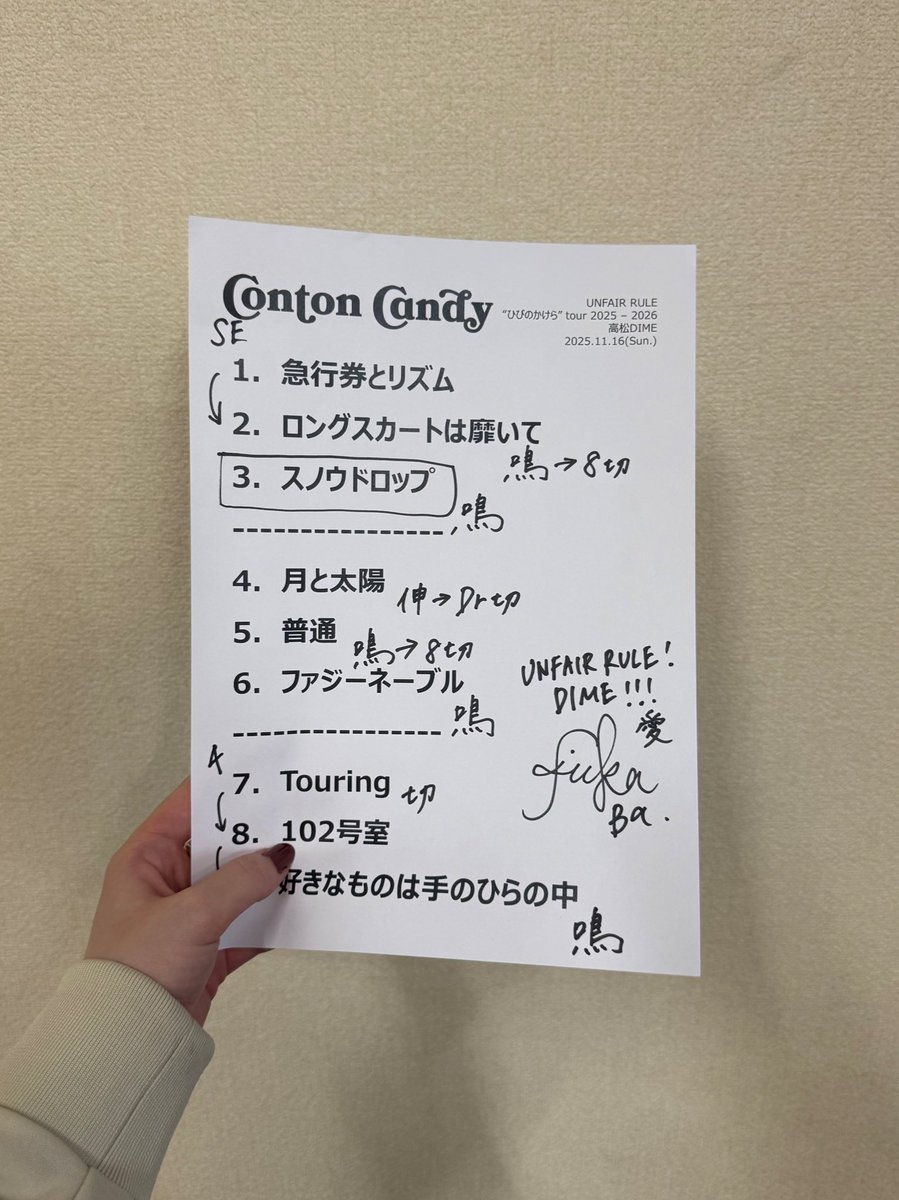 Conton Candy
UNFAIR RULE
“ひびのかけら” tour 2025 – 2026
高松DIME
2025.11.16(Sun.)
SE
1. 急行券とリズム
2. ロングスカートは靡いて
鳴→8切
3. スノウドロップ
鳴
4. 月と太陽
伸→Dr切
5. 普通
鳴→8切
6. ファジーネーブル
鳴
UNFAIR RULE!
DIME!!!
愛
fuka
Ba.
A
7. Touring
切
8. 102号室
好きなものは手のひらの中
鳴